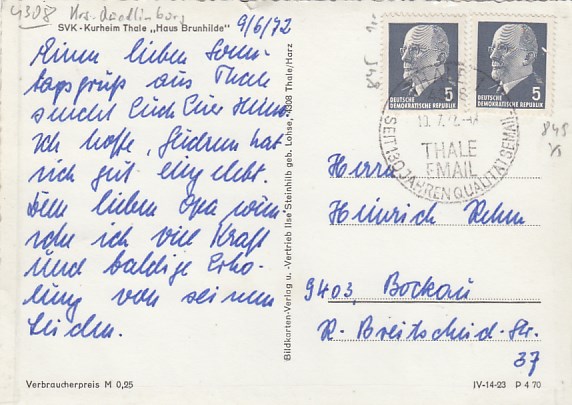 4308 Krs. Quedlinburg
SVK - Kurheim Thale „Haus Brunhilde"
9/6/72
Einen lieben Sonn-
tagsgruß aus Thale
sendet Euch Euer
Ich hoffe, Gudrun hat
sich gut eingelebt.
Dem lieben Opa wün-
sche ich viel Kraft
und baldige Erho-
lung von seinem
Leiden.
Verbraucherpreis M 0,25
Bildkarten-Verlag u. -Vertrieb Ilse Steinhilb geb. Lohse, 4308 Thale/Harz
845
5
DEUTSCHE
DEMOKRATISCHE REPUBLIK
5
DEUTSCHE
DEMOKRATISCHE REPUBLIK
845
THALE
EMAIL
SEIT 130 JAHREN QUALITÄTSEMAIL
Herrn
Heinrich Rehm
9403 Bockau
R. Breitscheid-Str.
37
IV-14-23 P 4 70